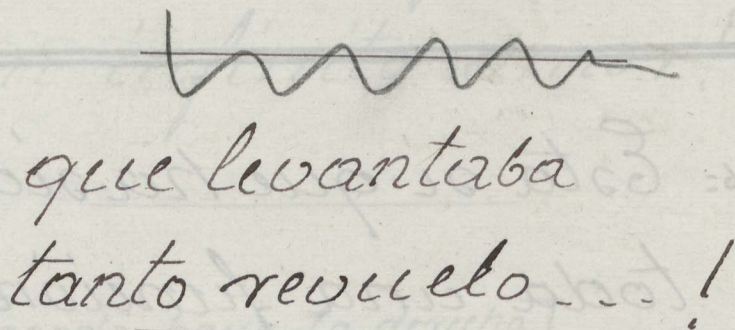 que levantaba
tanto revuelo....!